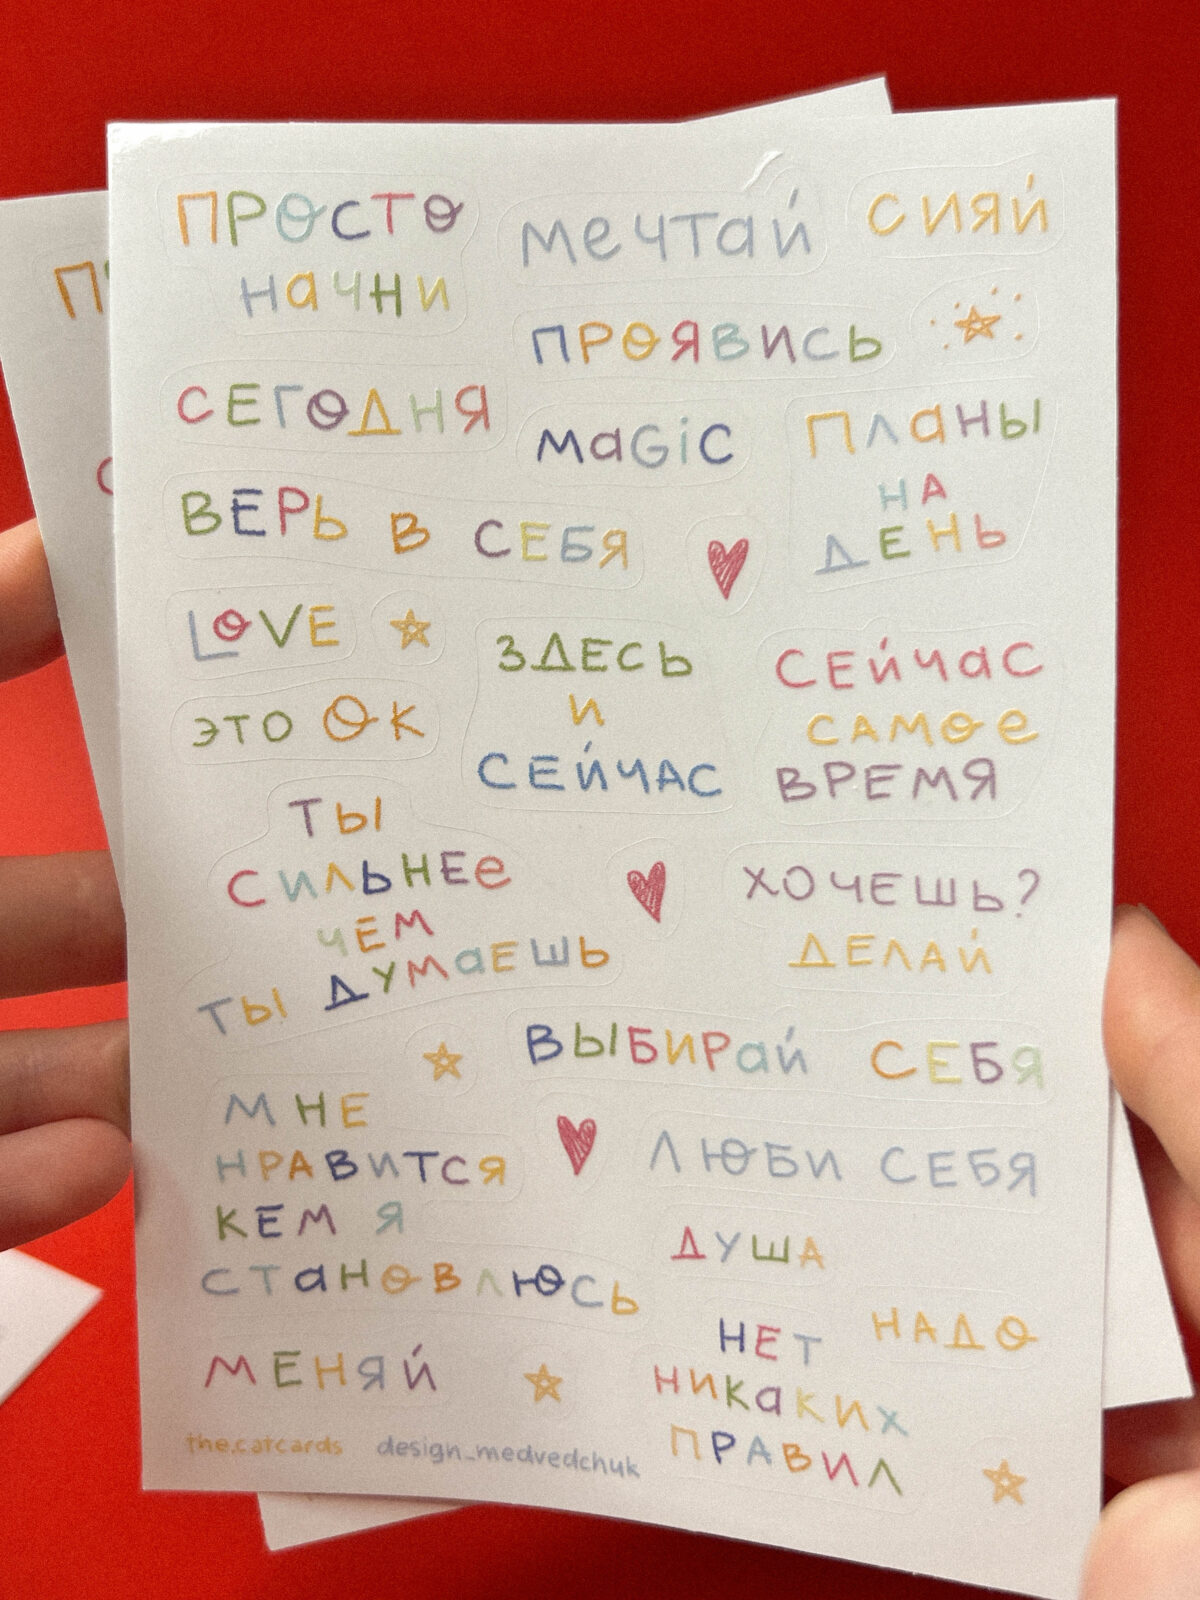 ПРОСТО
НаЧНИ
МеЧТай
СИЯЙ
ПРОЯВИСЬ
СЕГОДНЯ
MaGiC
ПЛаНЫ
НА
ДЕНЬ
ВЕРЬ В СЕБЯ
LOVE
ЗДЕСЬ
И
СЕЙЧАС
СЕЙЧаС
САМОе
ВРЕМЯ
ЭТО ОК
ТЫ
СИЛЬНЕе
ЧЕМ
ТЫ ДУМаЕШЬ
ХОЧЕШЬ?
ДЕЛАЙ
ВЫБИРай СЕБЯ
МНЕ
НРАВИТСЯ
КЕМ Я
СТаНОВЛЮСЬ
ЛЮБИ СЕБЯ
ДУША
НАДО
НЕТ
НИКаКИХ
ПРАВИЛ
МЕНЯЙ
the.catcards design_medvedchuk